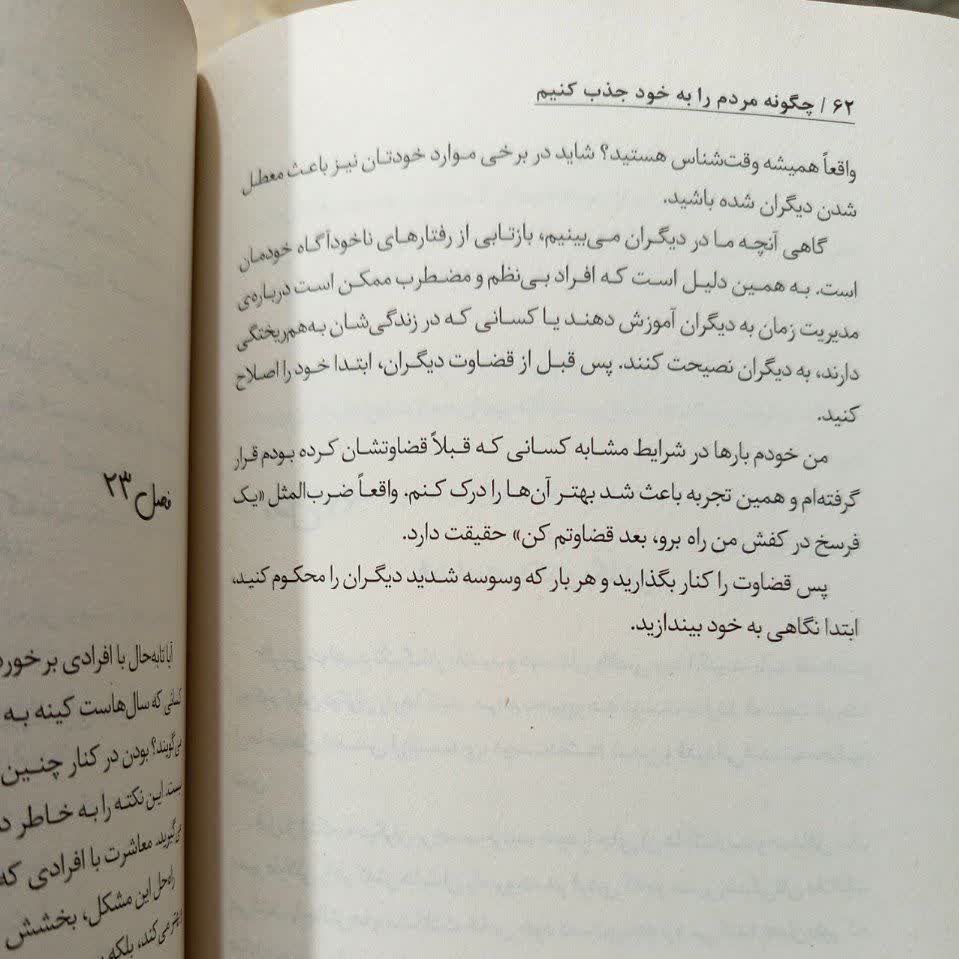 ۶۲ / چگونه مردم را به خود جذب کنیم
واقعاً همیشه وقت‌شناس هستید؟ شاید در برخی موارد خودتان نیز باعث معطل
شدن دیگران شده باشید.
گاهی آنچه ما در دیگران می‌بینیم، بازتابی از رفتارهای ناخودآگاه خودمان
است. به همین دلیل است که افراد بی‌نظم و مضطرب ممکن است درباره‌ی
مدیریت زمان به دیگران آموزش دهند یا کسانی که در زندگی‌شان به‌هم‌ریختگی
دارند، به دیگران نصیحت کنند. پس قبل از قضاوت دیگران، ابتدا خود را اصلاح
کنید.
من خودم بارها در شرایط مشابه کسانی که قبلاً قضاوتشان کرده بودم قرار
گرفته‌ام و همین تجربه باعث شد بهتر آن‌ها را درک کنم. واقعاً ضرب‌المثل «یک
فرسخ در کفش من راه برو، بعد قضاوتم کن» حقیقت دارد.
پس قضاوت را کنار بگذارید و هر بار که وسوسه شدید دیگران را محکوم کنید،
ابتدا نگاهی به خود بیندازید.
فصل ۲۳
آیا تابه‌حال با افرادی برخورد
کسانی که سال‌هاست کینه به
می‌گویند؟ بودن در کنار چنین
نیست. این نکته را به خاطر
می‌گیرید. معاشرت با افرادی که
راه‌حل این مشکل، بخشش
می‌کند، بلکه